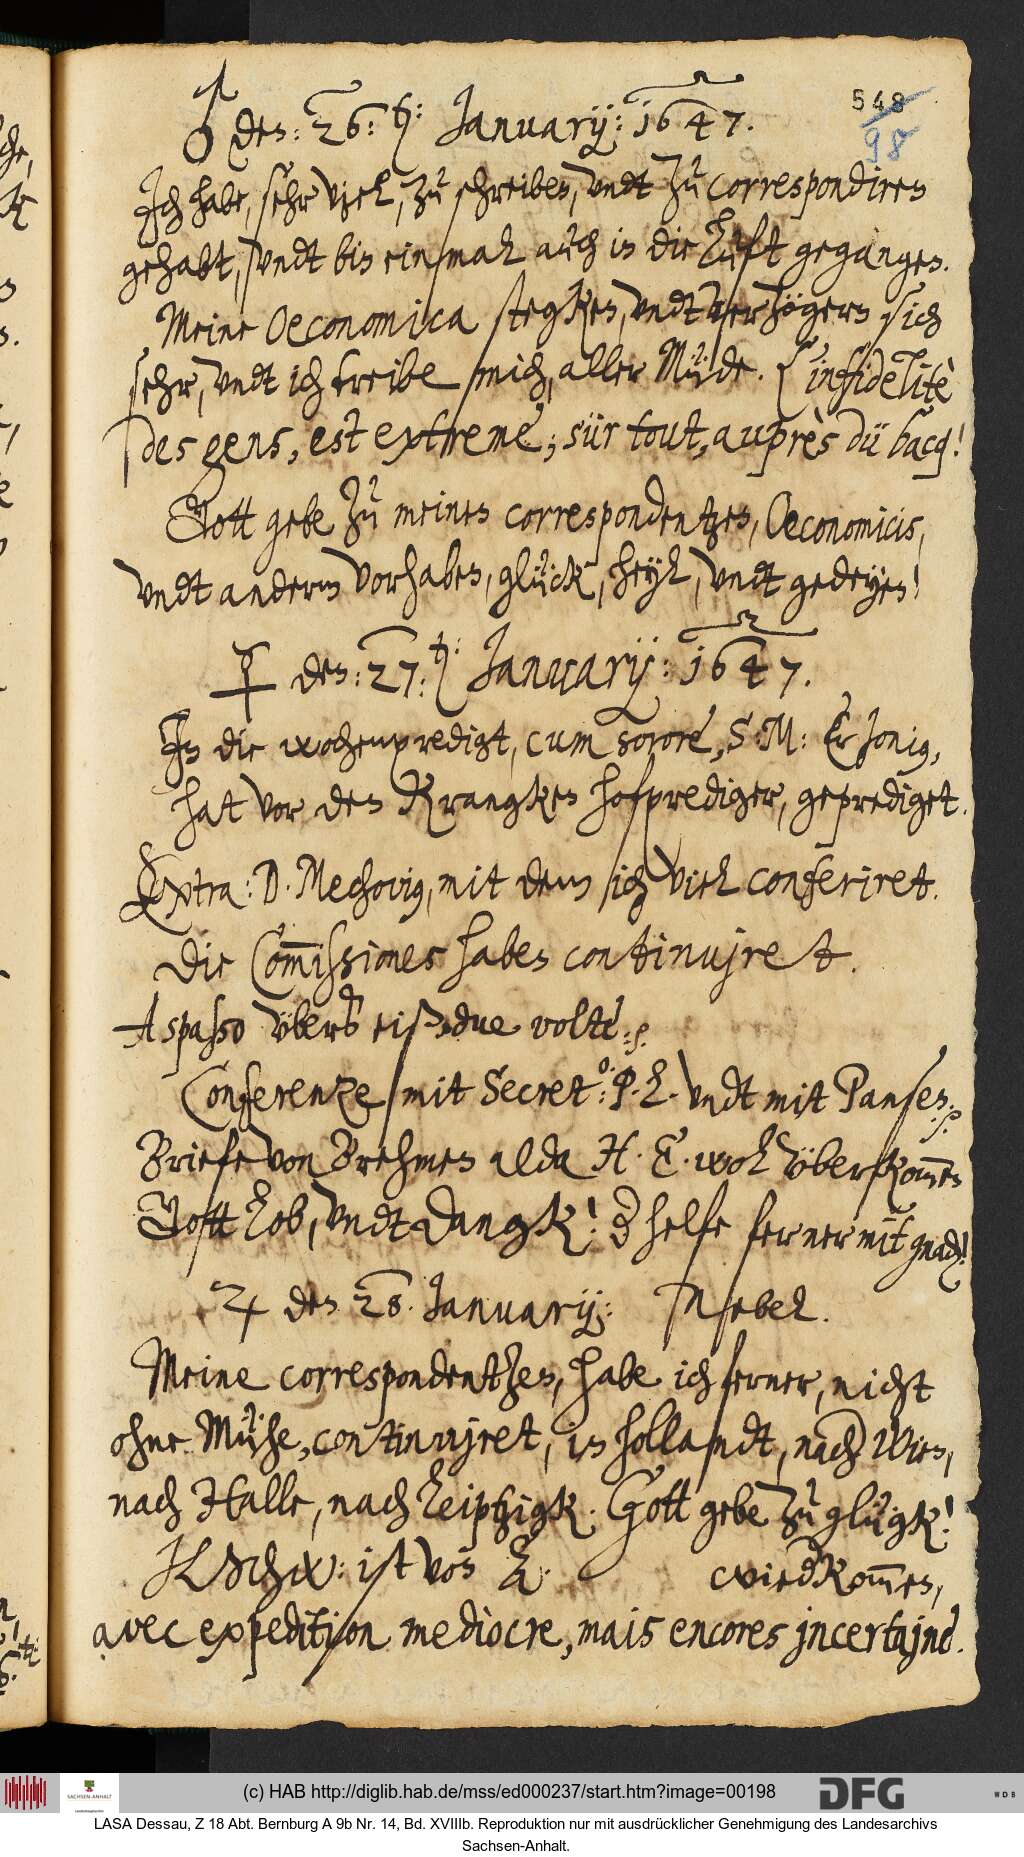 548
98
♂ den: 26: t: Januarij: 1647.
Ich habe, sehr viel, zu schreiben, undt zu correspondiren
gehabt, undt bin einmal auch in die Luft gegangen.
Meine Oeconomica stegken, undt verzögern sich
sehr, undt ich treibe mich, aller Müde. L'infidelitè
des gens, est extreme, sür tout, auprès dü bacq!
Gott gebe zu meinen correspondentzen, Oeconomicis,
undt andern vorhaben, glück, heyl, undt gedeyen!
☿ den: 27: t: Januarij: 1647.
In die wochenpredigt, cum sorore, S: M: Er Jonius,
hat vor den Krangken hofprediger, geprediget.
Extra: D. Mechovius, mit dem ich viel conferiret.
Die Commissiones haben continujret.
A spasso übers eiß due volte ././.
Conferentze mit Secret.º: P. L. undt mit Pansen ././.
Briefe von Brehmen alda H. E. wol überkommen
Gott Lob, undt Dangk! der helfe ferner mit gnad!
♃ den 28. Januarij: Nebel.
Meine correspondentzen, habe ich ferner, nicht
ohne Mühe, continujret, in hollandt, nach Wien,
nach Halle, nach Leiptzigk. Gott gebe zu glügk!
KSchw: ist von L. wiederkommen,
avec expeditjon mediocre, mais encores jncertajne.
(c) HAB http://diglib.hab.de/mss/ed000237/start.htm?image=00198
DFG
WDB
SACHSEN-ANHALT
LASA Dessau, Z 18 Abt. Bernburg A 9b Nr. 14, Bd. XVIIIb. Reproduktion nur mit ausdrücklicher Genehmigung des Landesarchivs
Sachsen-Anhalt.